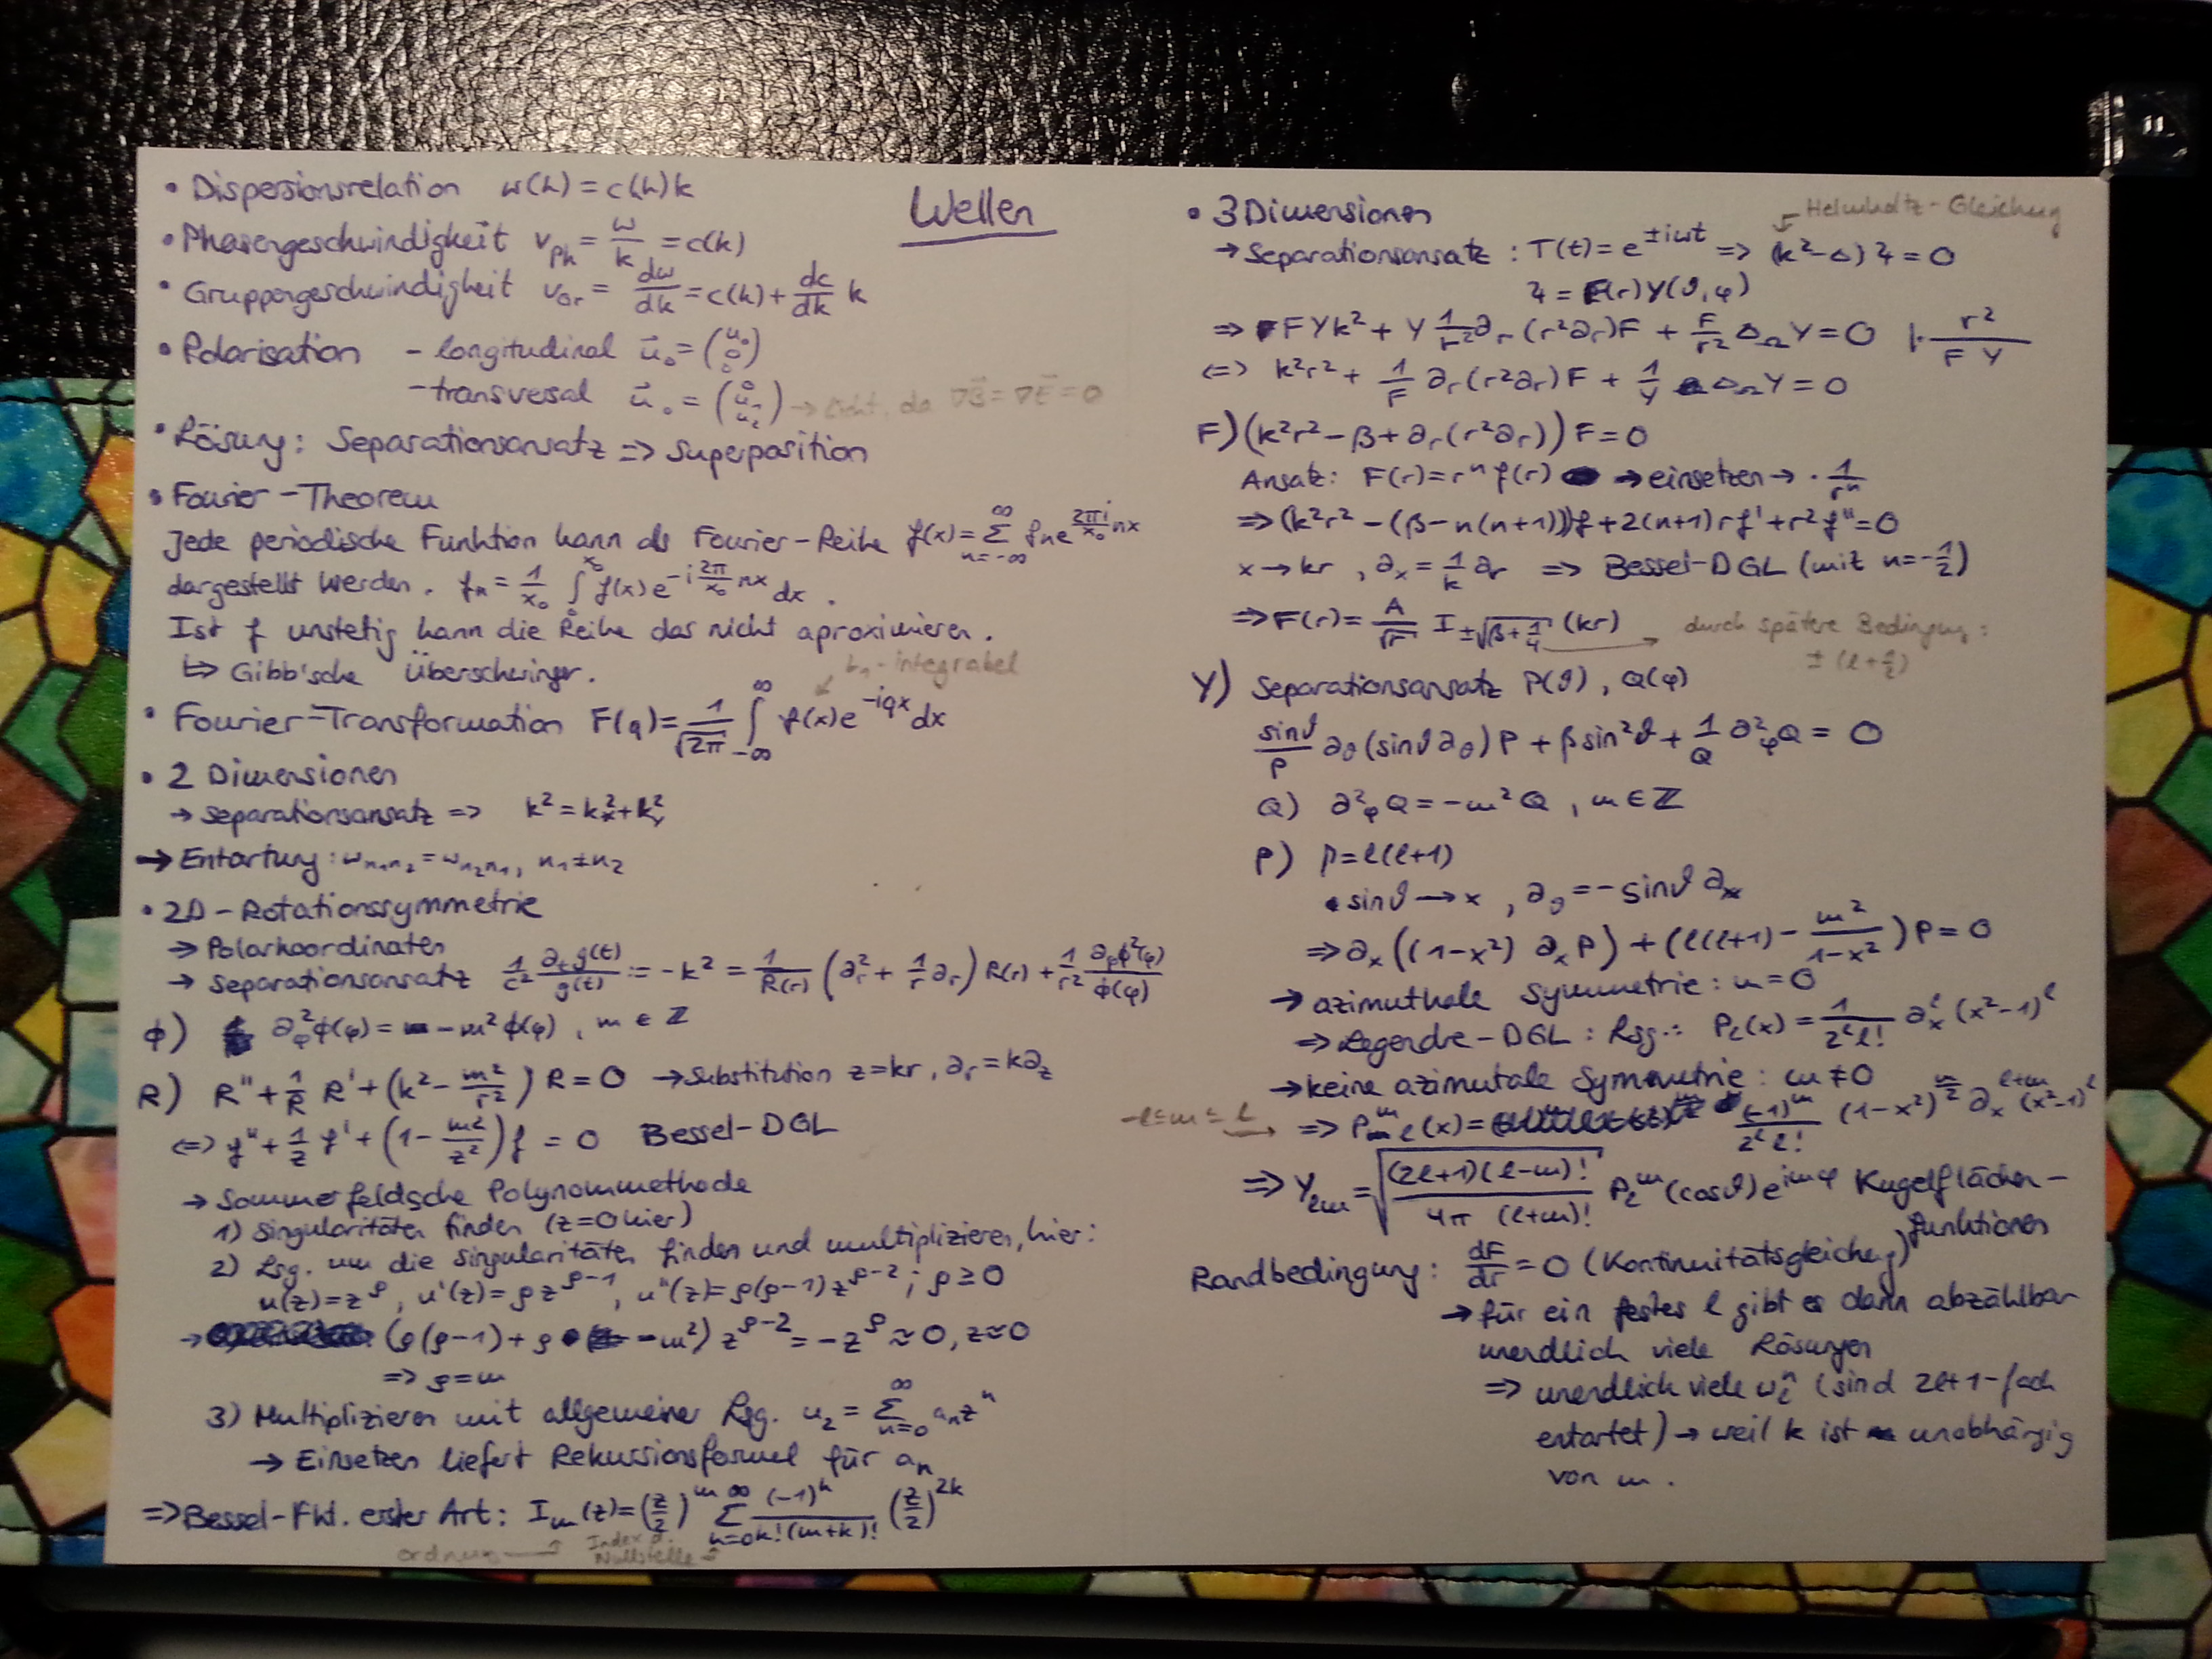 Wellen
• Dispersionsrelation ω(k) = c(k)k
• Phasengeschwindigkeit v_Ph = ω/k = c(k)
• Gruppengeschwindigkeit v_Gr = dω/dk = c(k) + dc/dk k
• Polarisation - longitudinal u⃗₀ = (u₀ 0 0)
- transversal u⃗₀ = (0 u₁ u₂) → Licht, da ∇B⃗ = ∇E⃗ = 0
• Lösung: Separationsansatz => Superposition
• Fourier-Theorem
Jede periodische Funktion kann als Fourier-Reihe f(x) = Σ_{n=-∞}^{∞} fₙ e^{2πi/x₀ nx}
dargestellt werden. fₙ = 1/x₀ ∫₀^{x₀} f(x) e^{-i 2π/x₀ nx} dx.
Ist f unstetig kann die Reihe das nicht aproximieren.
↳ Gibb'sche Überschwinger.
L₁-integrabel
• Fourier-Transformation F(q) = 1/√(2π) ∫_{-∞}^{∞} f(x) e^{-iqx} dx
• 2 Dimensionen
→ Separationsansatz => k² = kₓ² + k_y²
→ Entartung: ω_{n₁n₂} = ω_{n₂n₁}, n₁ ≠ n₂
• 2D-Rotationssymmetrie
→ Polarkoordinaten
→ Separationsansatz 1/c² ∂ₜg(t)/g(t) := -k² = 1/R(r) (∂ᵣ² + 1/r ∂ᵣ) R(r) + 1/r² ∂_φϕ²(φ)/ϕ(φ)
ϕ) ∂_φ²ϕ(φ) = -m²ϕ(φ), m ∈ ℤ
R) R'' + 1/R R' + (k² - m²/r²) R = 0 → Substitution z = kr, ∂ᵣ = k∂_z
<=> f'' + 1/z f' + (1 - m²/z²) f = 0 Bessel-DGL
→ Sommerfeldsche Polynommethode
1) Singularitäten finden (z=0 hier)
2) Lsg. um die Singularitäten finden und multiplizieren, hier:
u(z) = z^ρ, u'(z) = ρz^{ρ-1}, u''(z) = ρ(ρ-1)z^{ρ-2}; ρ ≥ 0
→ (ρ(ρ-1) + ρ - m²) z^{ρ-2} = -z^ρ ≈ 0, z ≈ 0
=> ρ = m
3) Multiplizieren mit allgemeiner Lsg. u₂ = Σ_{n=0}^{∞} aₙzⁿ
→ Einsetzen liefert Rekussionsformel für aₙ
=> Bessel-Fkt. erster Art: I_m(z) = (z/2)^m Σ_{k=0}^{∞} (-1)^k/(k!(m+k)!) (z/2)^{2k}
Ordnung → Index d.
Nullstelle
• 3 Dimensionen
Helmholtz-Gleichung
→ Separationsansatz: T(t) = e^{±iωt} => (k²-Δ)ψ = 0
ψ = F(r)Y(ϑ,φ)
=> FYk² + Y 1/r² ∂ᵣ(r²∂ᵣ)F + F/r² Δ_Ω Y = 0 |· r²/(F Y)
<=> k²r² + 1/F ∂ᵣ(r²∂ᵣ)F + 1/Y Δ_Ω Y = 0
F) (k²r² - β + ∂ᵣ(r²∂ᵣ)) F = 0
Ansatz: F(r) = rⁿf(r) → einsetzen → · 1/rⁿ
=> (k²r² - (β - n(n+1)))f + 2(n+1)rf' + r²f'' = 0
x → kr, ∂ₓ = 1/k ∂ᵣ => Bessel-DGL (mit n = -1/2)
=> F(r) = A/√r I_{±√(β+1/4)} (kr) → durch spätere Bedingung:
± (l + 1/2)
Y) Separationsansatz P(ϑ), Q(φ)
sinϑ/P ∂_ϑ(sinϑ ∂_ϑ) P + β sin²ϑ + 1/Q ∂²_φ Q = 0
Q) ∂²_φ Q = -m²Q, m ∈ ℤ
P) β = l(l+1)
sinϑ → x, ∂_ϑ = -sinϑ ∂ₓ
=> ∂ₓ((1-x²) ∂ₓP) + (l(l+1) - m²/(1-x²)) P = 0
→ azimuthale Symmetrie: m = 0
=> Legendre-DGL: Lsg.: P_l(x) = 1/(2^l l!) ∂ₓ^l (x²-1)^l
→ keine azimutale Symmetrie: m ≠ 0
-l ≤ m ≤ l → => P^m_l(x) = (-1)^m/(2^l l!) (1-x²)^{m/2} ∂ₓ^{l+m} (x²-1)^l
=> Y_{lm} = √((2l+1)(l-m)!/(4π (l+m)!)) P_l^m(cosϑ) e^{imφ} Kugelflächen-
funktionen
Randbedingung: dF/dr = 0 (Kontinuitätsgleichung)
→ für ein festes l gibt es dann abzählbar
unendlich viele Lösungen
=> unendlich viele ω_l^n (sind 2l+1-fach
entartet) → weil k ist unabhängig
von m.